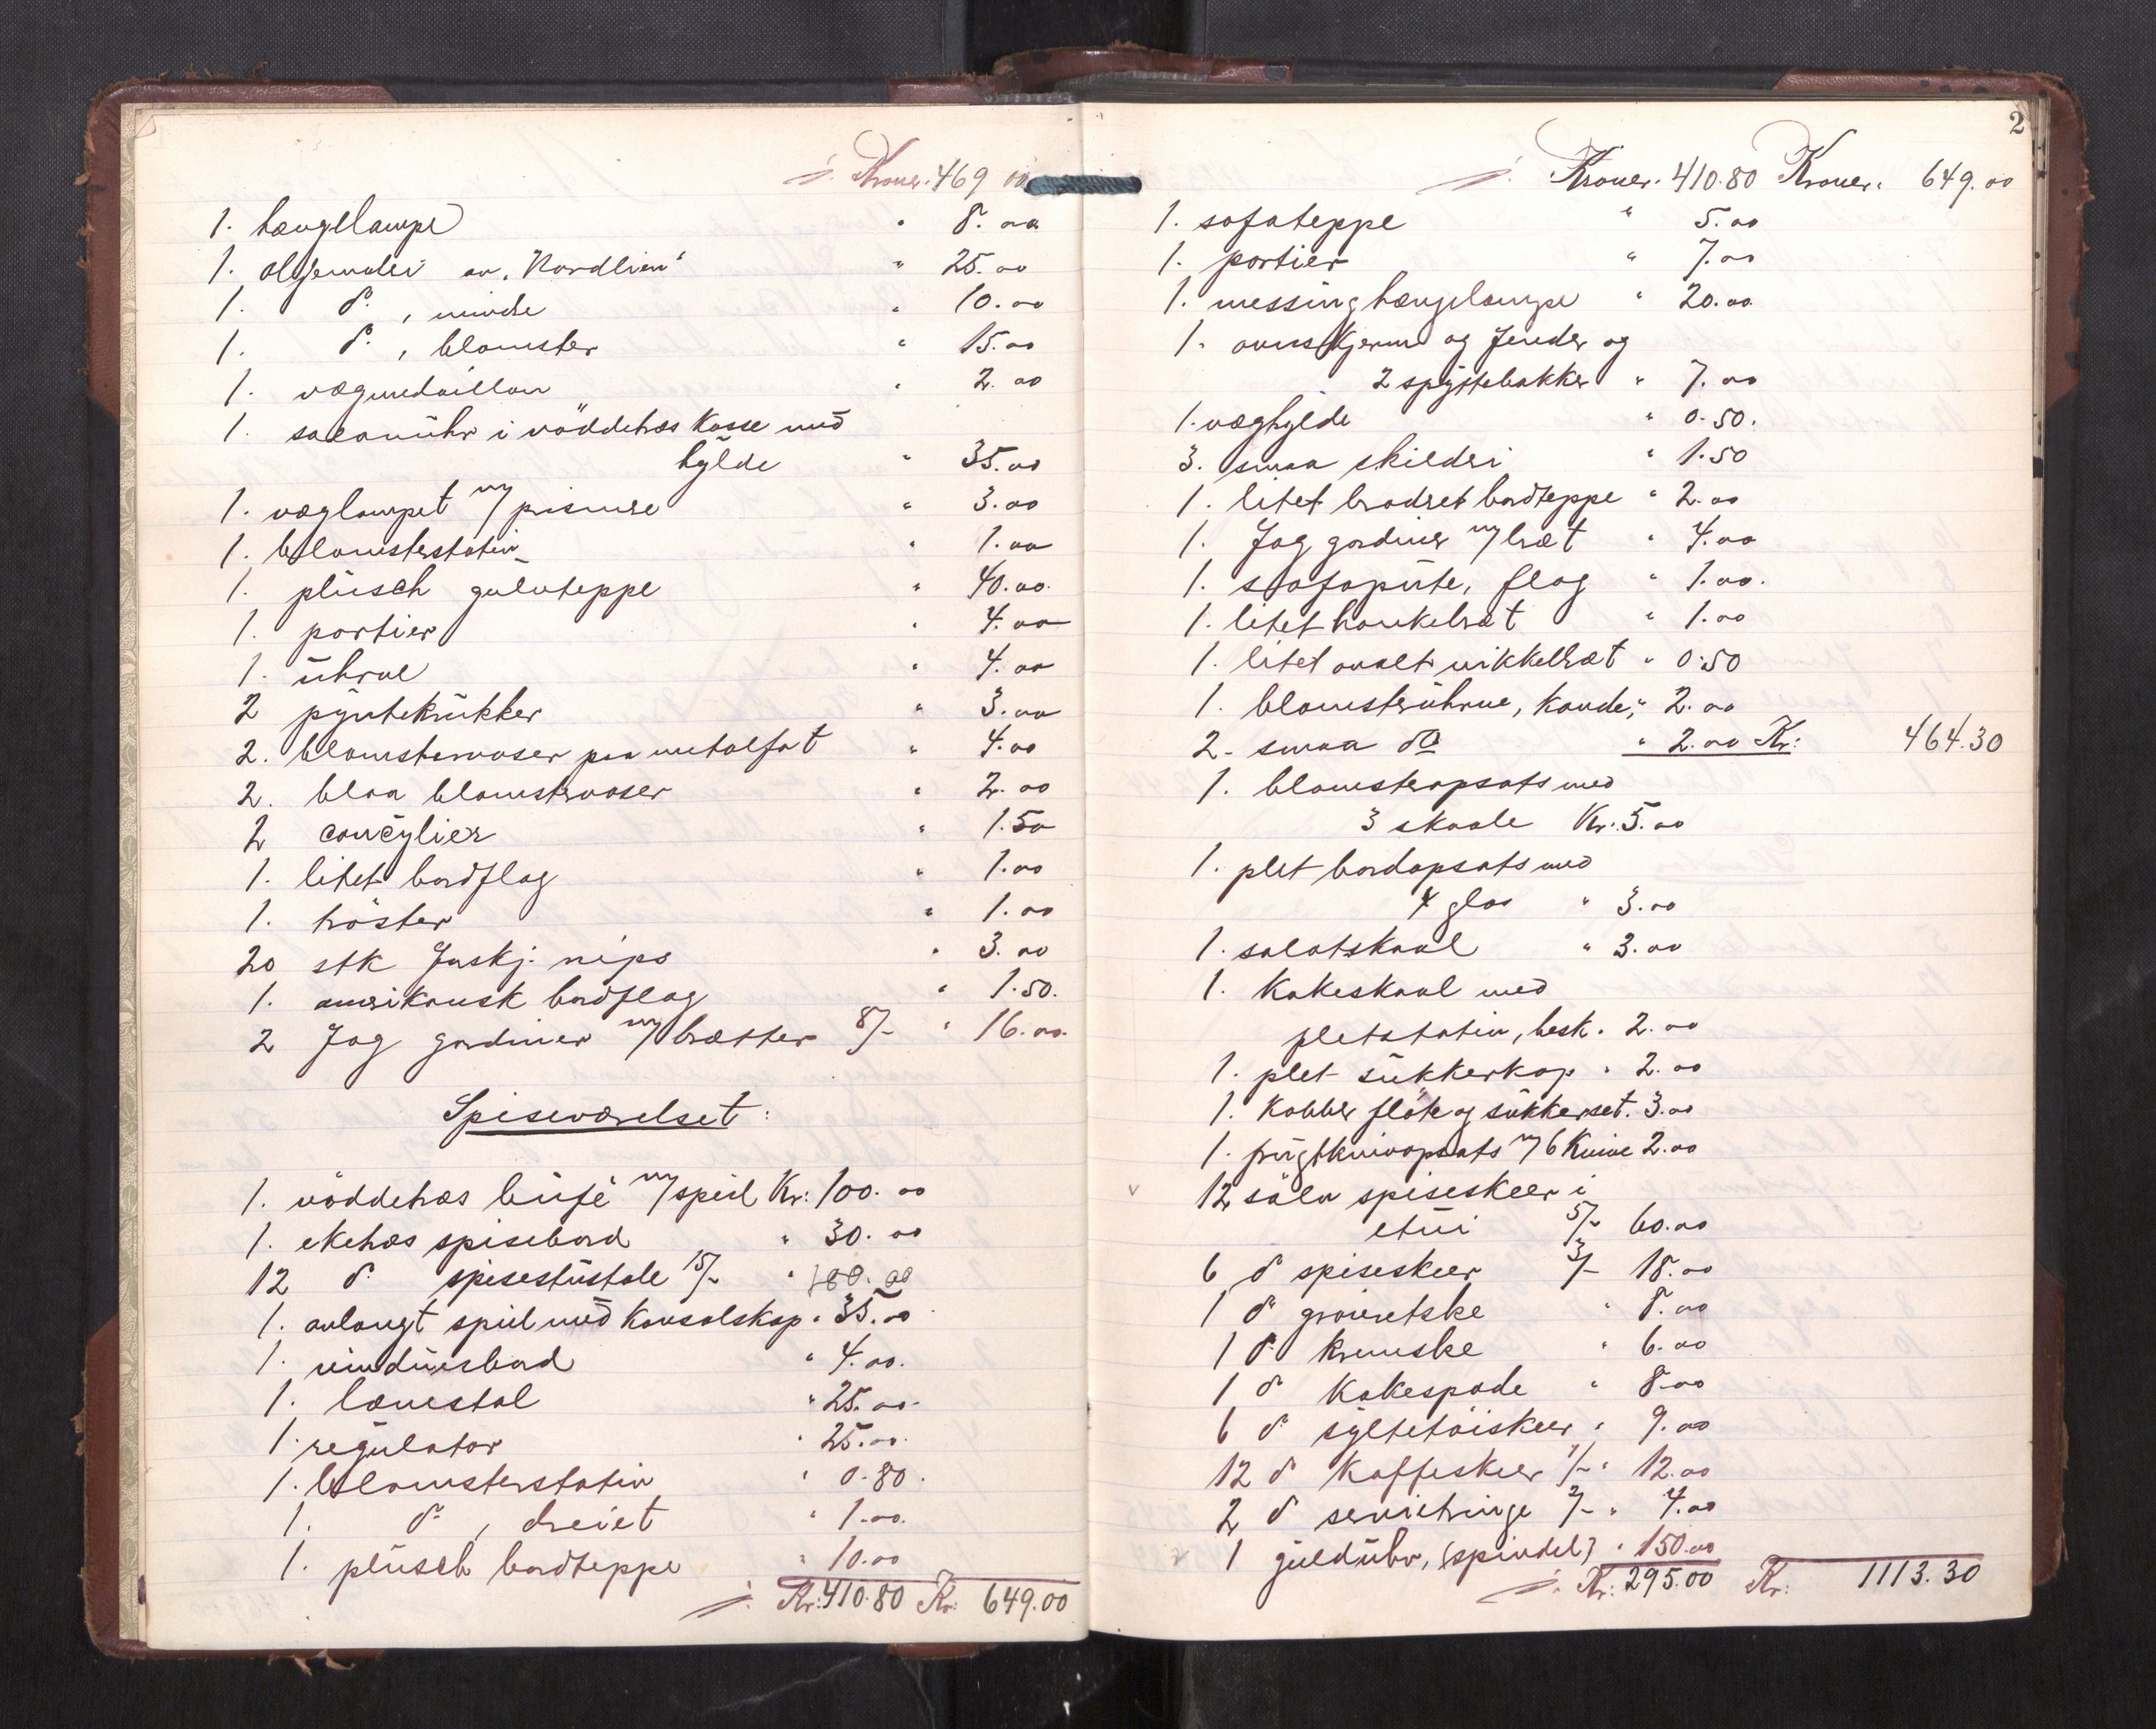 Kroner. 469 00
1. hængelampe " 8.00
1. oljemaleri av "Nordlien" " 25.00
1. do , mindre " 10.00
1. do , blomster " 15.00
1. vægmedaillon " 2.00
1. salonuhr i nöddetræs kasse med
hylde " 35.00
1. væglampet m/ prismre " 3.00
1. blomsterstativ " 1.00
1. plüsch gulvteppe " 40.00
1. portier " 4.00
1. uhrne " 4.00
2 pyntekrukker " 3.00
2. blomstervaser paa metalfat " 4.00
2. blaa blomstervaser " 2.00
2 concylier " 1.50
1. litet bordflag " 1.00
1. " 1.00
20 stk forskj. nips " 3.00
1. amerikansk bordflag " 1.50.
2 fag gardiner m/brætter 8/- " 16.00
Spiseværelset:
1. nöddetræs büfé m/speil Kr: 100.00
1. eketræs spisebord " 30.00
12 do spisestustole 15/- " 180.00
1. avlangt speil med konsolskap " 35.00
1. vinduesbord " 4.00.
1. lænestol " 25.00
1. regulator " 25.00
1. blomsterstativ " 0.80.
1. do , dreiet " 1.00.
1. plüsch bordteppe " 10.00
Kr: 410.80 Kr: 649.00
2
Kroner. 410.80 Kroner. 649.00
1. sofateppe " 5.00
1. portier " 7.00
1. messing hængelampe " 20.00
1. ovnsskjerm og fender og
2 spyttebakker " 7.00
1. væghylde " 0.50.
3. smaa skilderi " 1.50
1. litet brodret bordteppe " 2.00
1. fag gardiner m/bræt " 4.00
1. sofapute, flag " 1.00.
1. litet hankebræt " 1.00
1. litet ovalt nikkelbræt " 0.50
1. blomsteruhrne, kande, " 2.00
2 - smaa do " 2.00 Kr: 464.30
1. blomsteropsats med
3 skaale Kr. 5.00
1. plet bordopsats med
4 glas " 3.00
1. salatskaal " 3.00
1. kakeskaal med
pletstativ, besk. 2.00
1. plet sukkerkop " 2.00
1. kobber fløte og sukkerset. 3.00
1. frugtknivopsats m/ 6 knive 2.00
12 sölv spiseskeer i
etui 5/- 60.00
6 do spiseskeer 3/- 18.00
1 do " 8.00
1 do kremske " 6.00
1 do kakespade " 8.00
6 do syltetöiskeer " 9.00
12 do kaffeskeer 1/- " 12.00
2 do servietringe 2/- " 4.00
1 guldühr, (spindel) " 150.00
Kr: 295.00 Kr: 1113.30